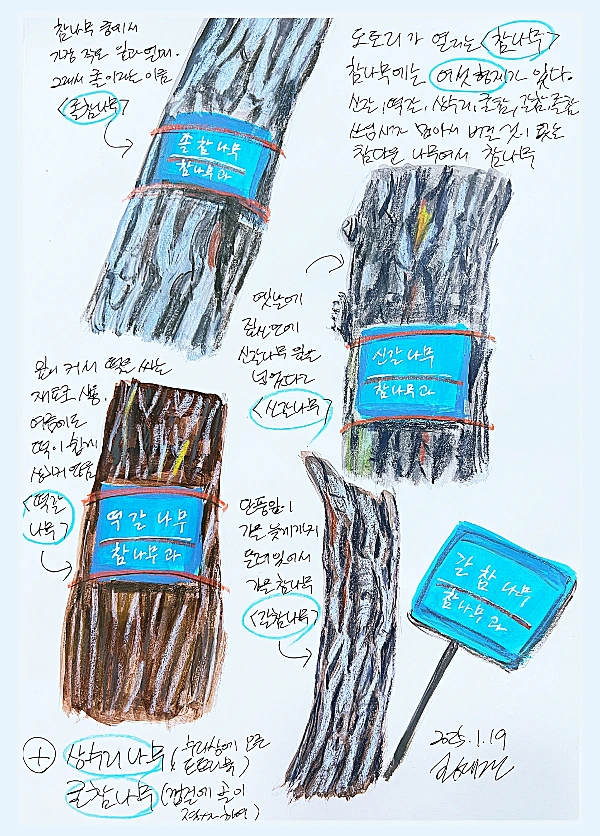 참나무 중에서
가장 작은 잎과 열매.
그래서 졸이라는 이름
<졸참나무>
졸참나무
참나무과
도토리가 열리는 <참나무>
참나무에는 여섯형제가 있다.
신갈, 떡갈, 상수리, 굴참, 갈참, 졸참
버릴 것이 없는
참다운 나무여서 참나무
옛날에
짚신면에
신갈나무 잎을
넣었다고
<신갈나무>
신갈나무
참나무과
잎이 커서 떡을 싸는
재료로 사용.
여름에도
떡이 쉽게
상하지 않음
<떡갈
나무>
떡갈나무
참나무과
단풍잎이
가을 늦게까지
달려있어서
가을 참나무
<갈참나무>
갈참나무
참나무과
+ 상수리나무 (수라상에 오른
도토리묵)
굴참나무 (껍질에 골이
2025.1.19